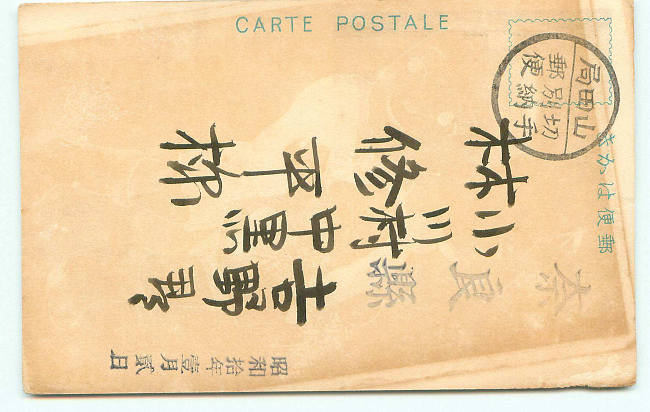 CARTE POSTALE
郵便はかき
山田局
切手別納郵便
奈良縣吉野郡
小川村中黒
林修平様
昭和拾年壹月貳日